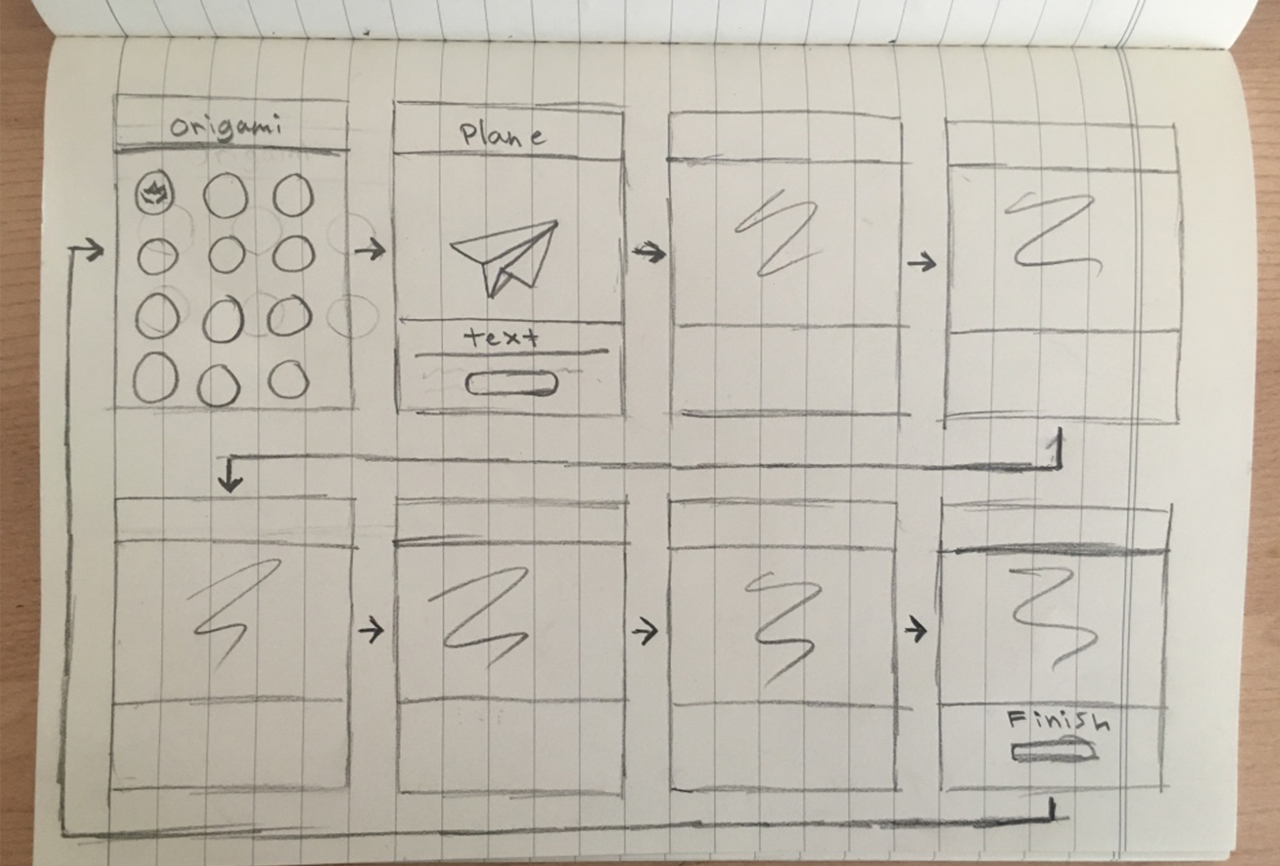 origami
Plane
text
Finish